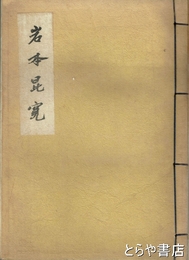 岩本昆寛
© とらや書店